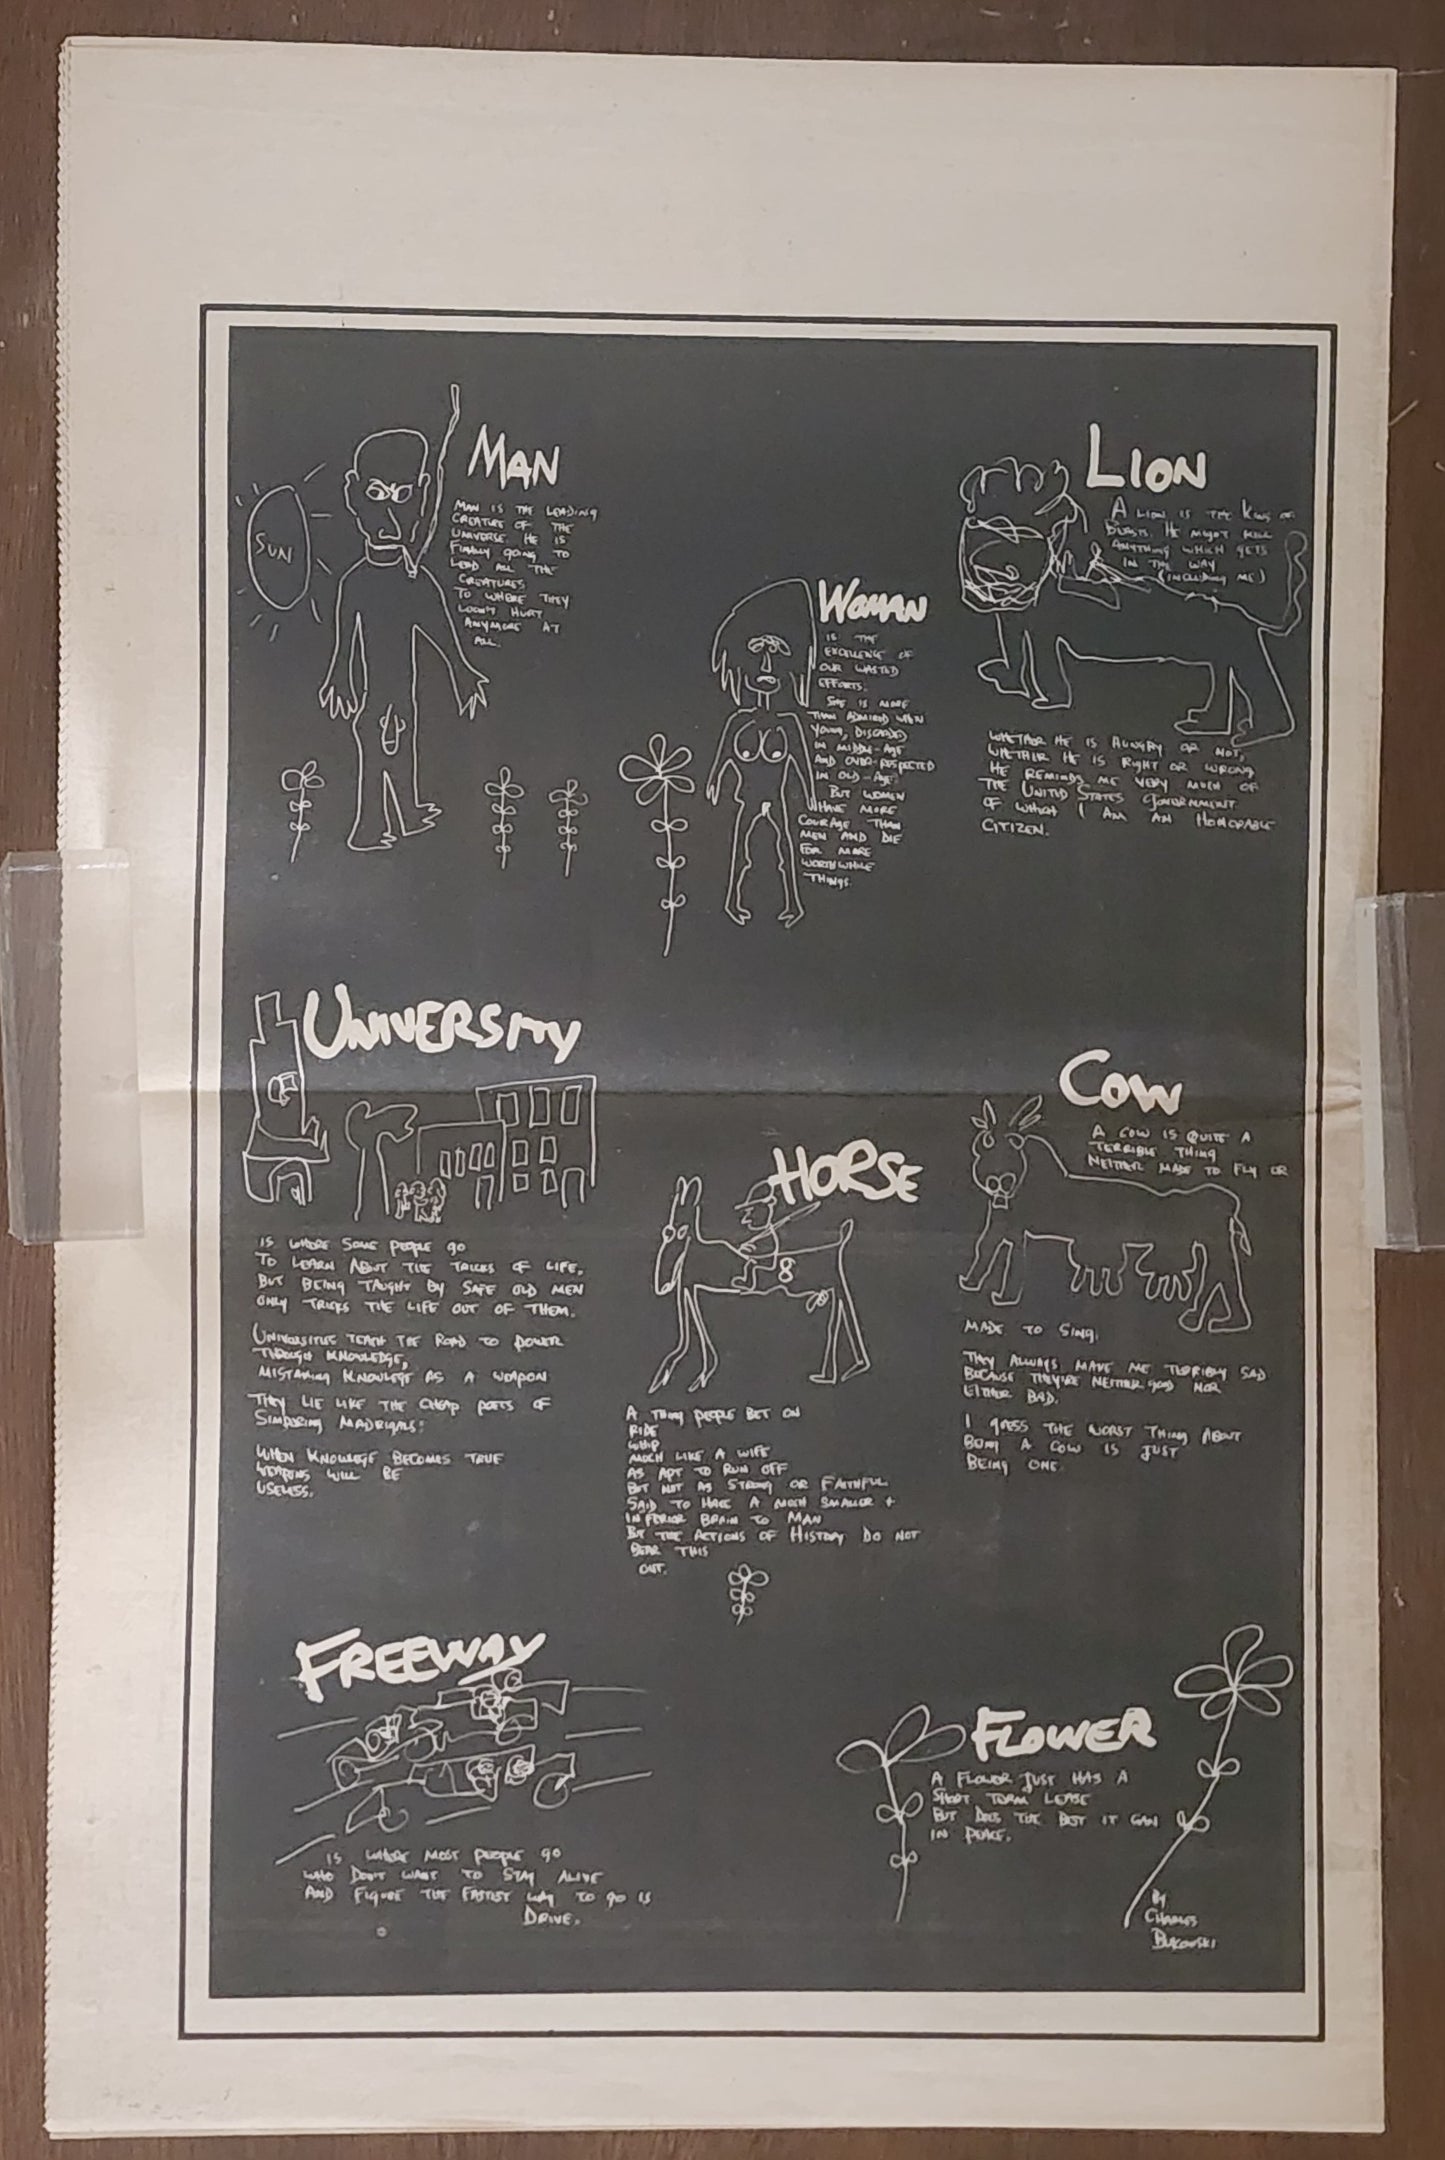 SUN
MAN
MAN IS THE LEADING
CREATURE OF THE
UNIVERSE. HE IS
FINALLY GOING TO
LEAD ALL THE
CREATURES
TO WHERE THEY
WON'T HURT
ANYMORE AT
ALL.
WOMAN
IS THE
EXCELLENCE OF
OUR WASTED
EFFORTS.
SHE IS MORE
THAN ADMIRED WHEN
YOUNG, DISCARDED
IN MIDDLE-AGE
AND OVER-RESPECTED
IN OLD-AGE
BUT WOMEN
HAVE MORE
COURAGE THAN
MEN AND DIE
FOR MORE
WORTHWHILE
THINGS.
LION
A LION IS THE KING OF
BEASTS. HE MIGHT KILL
ANYTHING WHICH GETS
IN THE WAY
(INCLUDING ME)
WHETHER HE IS HUNGRY OR NOT,
WHETHER HE IS RIGHT OR WRONG
HE REMINDS ME VERY MUCH OF
THE UNITED STATES GOVERNMENT
OF WHICH I AM AN HONORABLE
CITIZEN.
UNIVERSITY
IS WHERE SOME PEOPLE GO
TO LEARN ABOUT THE TRICKS OF LIFE,
BUT BEING TAUGHT BY SAFE OLD MEN
ONLY TRICKS THE LIFE OUT OF THEM.
UNIVERSITIES TEACH THE ROAD TO POWER
THROUGH KNOWLEDGE,
MISTAKING KNOWLEGE AS A WEAPON
THEY LIE LIKE THE CHEAP POETS OF
SIMPERING MADRIGALS:
WHEN KNOWLEGE BECOMES TRUE
WEAPONS WILL BE
USELESS.
HORSE
8
A THING PEOPLE BET ON
RIDE
WHIP
MUCH LIKE A WIFE
AS APT TO RUN OFF
BUT NOT AS STRONG OR FAITHFUL
SAID TO HAVE A MUCH SMALLER +
INFERIOR BRAIN TO MAN
BUT THE ACTIONS OF HISTORY DO NOT
BEAR THIS
OUT.
COW
A COW IS QUITE A
TERRIBLE THING
NEITHER MADE TO FLY OR
MADE TO SING.
THEY ALWAYS MAKE ME TERRIBLY SAD
BECAUSE THEY'RE NEITHER GOOD NOR
EITHER BAD.
I GUESS THE WORST THING ABOUT
BEING A COW IS JUST
BEING ONE.
FREEWAY
IS WHERE MOST PEOPLE GO
WHO DON'T WANT TO STAY ALIVE
AND FIGURE THE FASTEST WAY TO GO IS
DRIVE.
FLOWER
A FLOWER JUST HAS A
SHORT TERM LEASE
BUT DOES THE BEST IT CAN
IN PEACE.
BY
CHARLES
BUKOWSKI